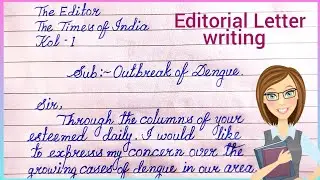 The Editor
The Times of India
Kol - 1
Editorial Letter
writing
Sub:- Outbreak of Dengue.
Sir,
Through the columns of your
esteemed daily. I would like
to express my concern over the
growing cases of dengue in our area